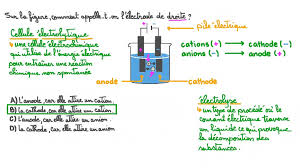 Sur la figure, comment appelle-t-on l'électrode de droite ?
Cellule électrolytique
une cellule électrochimique
qui utilise de l'énergie électrique
pour entraîner une réaction
chimique non spontanée
pile électrique
cations (+) → cathode (−)
anions (−) → anode (+)
anode
cathode
A) L'anode, car elle attire un cation
B) La cathode, car elle attire un cation
C) L'anode, car elle attire un anion
D) La cathode, car elle attire un anion
électrolyse
un type de procédé où le
courant électrique traverse
un liquide, ce qui provoque
la décomposition des
substances.